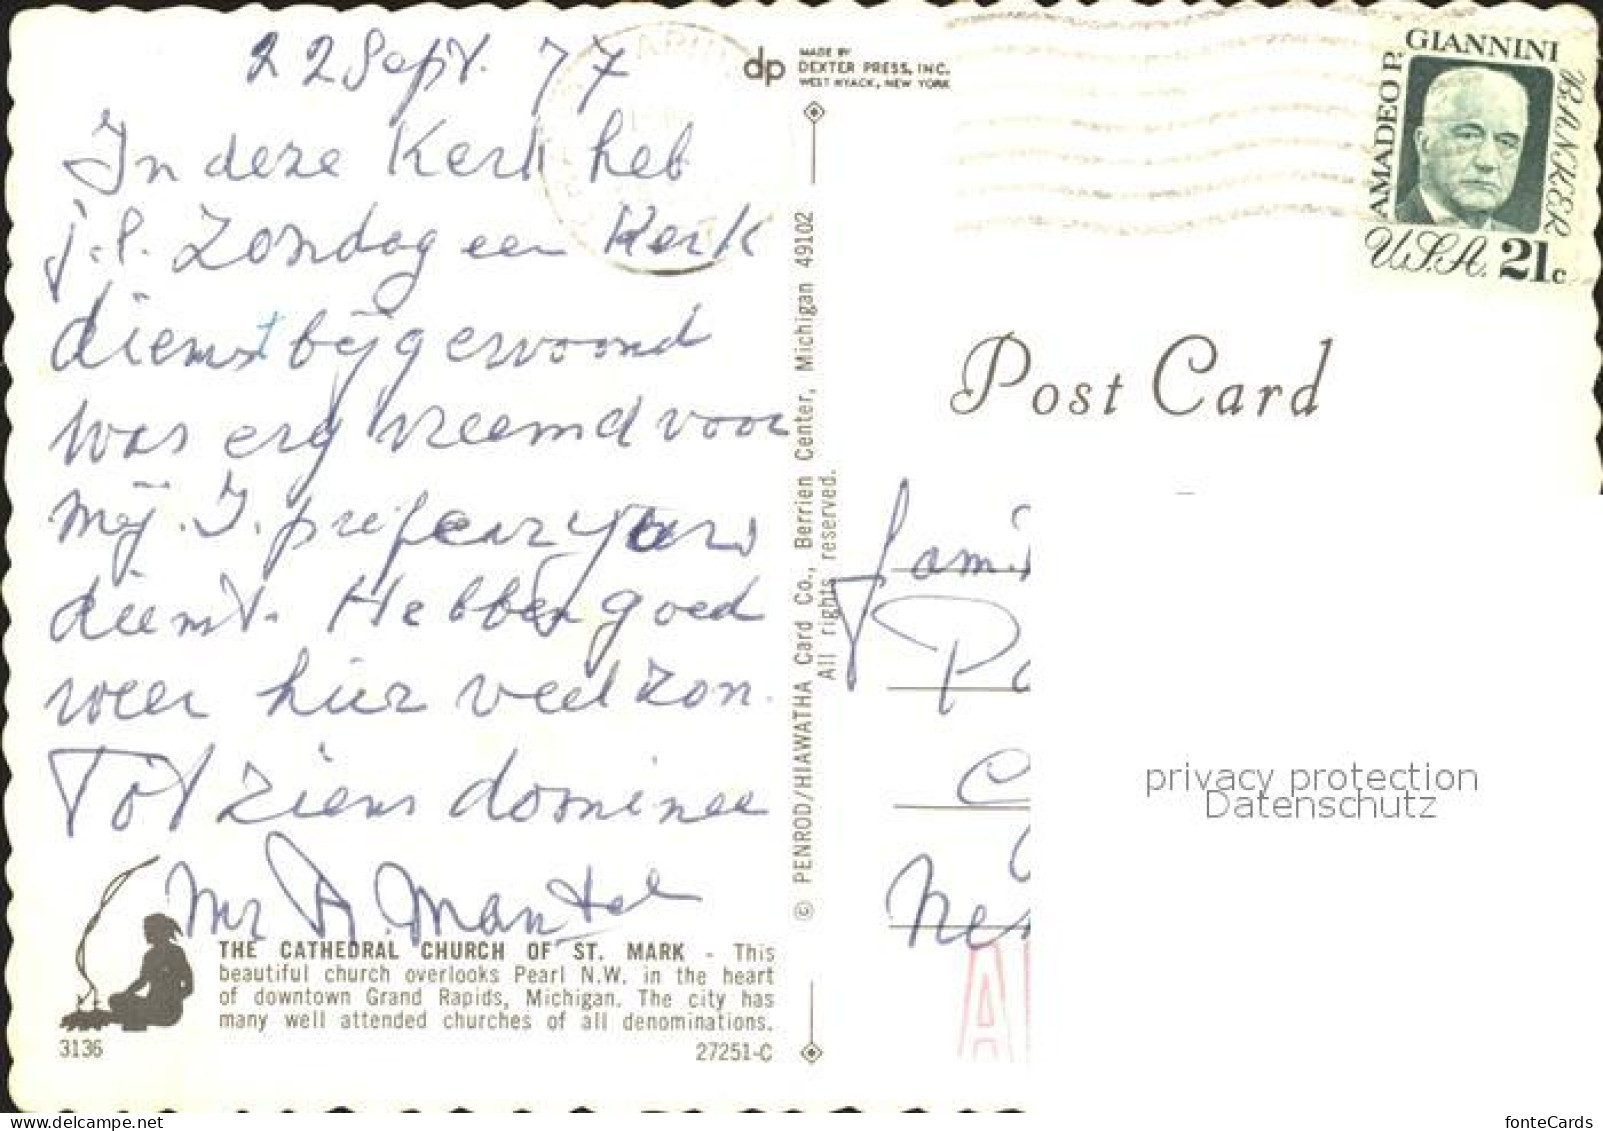 22 Sept. 77
In deze Kerk heb
j.l. Zondag een Kerk
dienst bijgewoond
Was erg vreemd voor
mij. I. prefear yours
dienst. Hebben goed
weer hier veel zon.
Tot ziens dominee
Mr A. Mantel
THE CATHEDRAL CHURCH OF ST. MARK - This
beautiful church overlooks Pearl N.W. in the heart
of downtown Grand Rapids, Michigan. The city has
many well attended churches of all denominations.
3136
27251-C
dp
MADE BY
DEXTER PRESS, INC.
WEST NYACK, NEW YORK
© PENROD/HIAWATHA Card Co., Berrien Center, Michigan 49102
All rights reserved.
AMADEO P. GIANNINI BANKER
U.S.A. 21c
Post Card
fam.
privacy protection
Datenschutz
www.delcampe.net
fonteCards